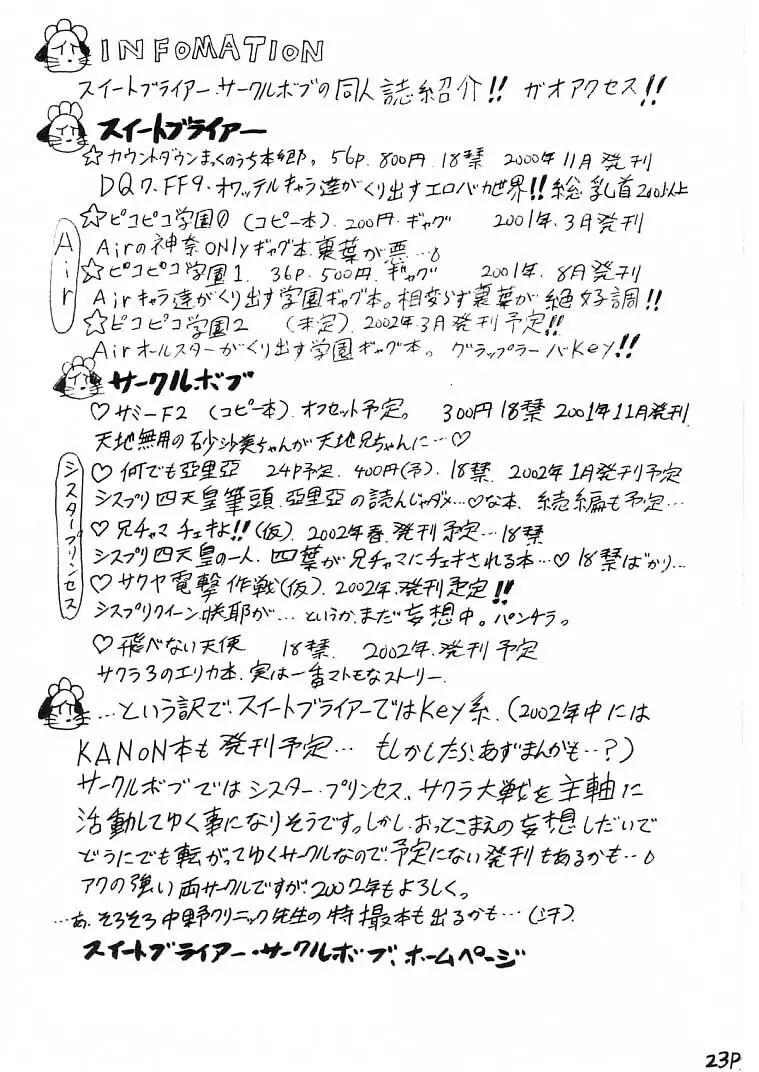 INFOMATION
スイートブライアー・サークルボブの同人誌紹介!! ガオアクセス!!
スイートブライアー
☆カウントダウンまっくのうち本郷。56P.800円.18禁 2000年11月発刊
DQ7.FF9.オワッテルキャラ達がくり出すエロバカ世界!!総乳首200以上
Air
☆ピコピコ学園0 (コピー本).200円.ギャグ 2001年.3月発刊
Airの神奈ONlyギャグ本裏葉が悪…
☆ピコピコ学園1. 36P.500円.ギャグ 2001年.8月発刊
Airキャラ達がくり出す学園ギャグ本。相変らず裏葉が絶好調!!
☆ピコピコ学園2 (未定).2002年.3月発刊予定!!
Airオールスターがくり出す学園ギャグ本。グラップラーバKey!!
サークルボブ
♡サミーF2 (コピー本).オフセット予定。 300円 18禁 2001年11月発刊
天地無用の砂沙美ちゃんが天地兄ちゃんに…♡
シスタープリンセス
♡何でも亞里亞 24P予定.400円(予).18禁 2002年1月発刊予定
シスプリ四天皇筆頭.亞里亞の読んじゃダメ…♡な本、続編も予定…
♡兄チャマチェキよ!!(仮).2002年春.発刊予定…18禁
シスプリ四天皇の一人.四葉が兄チャマにチェキされる本…♡18禁ばかり…
♡サクヤ電撃作戦(仮).2002年.発刊予定!!
シスプリクイーン咲耶が…というか.まだ妄想中。パンチラ。
♡飛べない天使 18禁 2002年.発刊予定
サクラ3のエリカ本.実は一番マトモなストーリー.
…という訳で、スイートブライアーではKey系.(2002年中には
KANON本も発刊予定… もしかしたら、あずまんがも…?)
サークルボブではシスター・プリンセス、サクラ大戦を主軸に
活動してゆく事になりそうです。しかし、おっとこまえの妄想しだいで
どうにでも転がってゆくサークルなので、予定にない発刊もあるかも…
アクの強い両サークルですが、2002年もよろしく。
…あ、そろそろ中野クリニック先生の特撮本も出るかも…(汗).
スイートブライアー・サークルボブ、ホームページ
23P